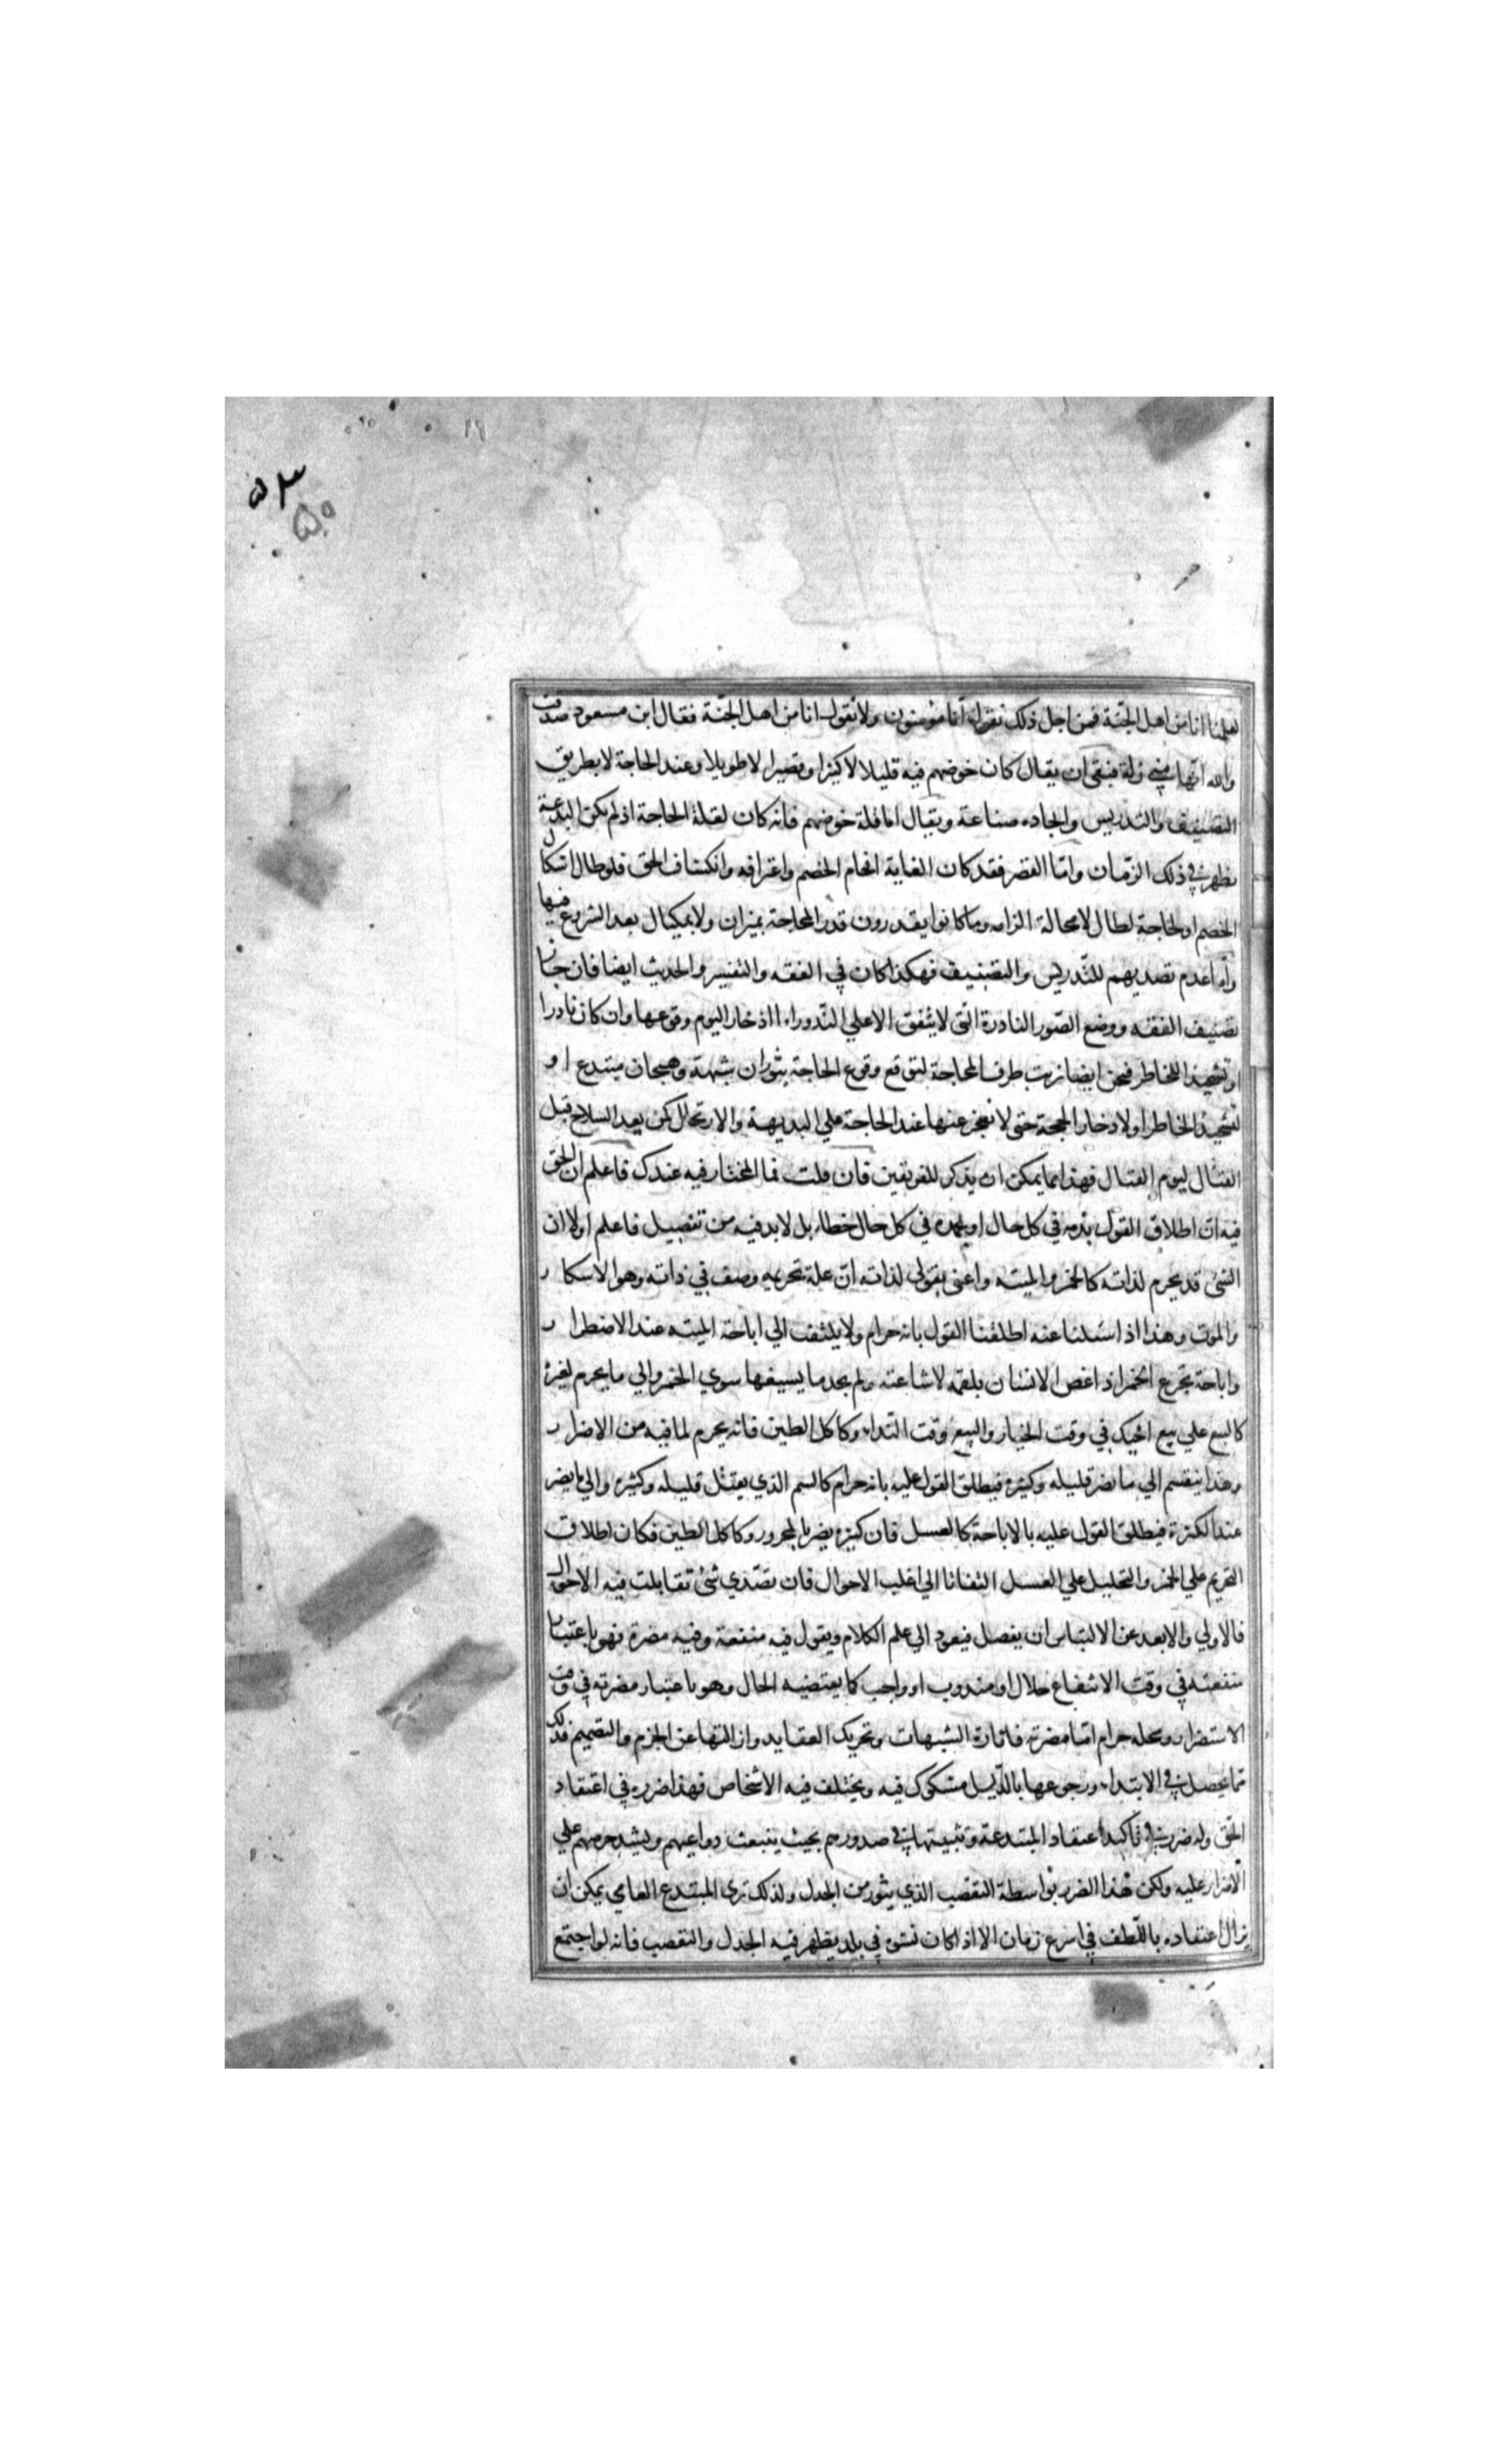 لعلمنا انا من اهل الجنّة فمن اجل ذلك نقول انا مؤمنون ولا نقول انا من اهل الجنّة فقال ابن مسعود صدقت
والله انّها منّي زلة فينبغي ان يقال كان خوضهم فيه قليلا لا كثيرا وقصيرا لا طويلا وعند الحاجة لا بطريق
التصنيف والتدريس واتخاذه صناعة ويقال اما قلة خوضهم فانه كان لقلة الحاجة اذ لم تكن البدعة
تظهر في ذلك الزّمان وامّا القصر فقد كان الغاية افحام الخصم واعترافه وانكشاف الحق فلو طال اشكال
الخصم او لحاجة لطال لا محالة الزامه وما كانوا يقدرون قدر الحاجة بميزان ولا بمكيال بعد الشروع فيها
وامّا عدم تصديهم للتّدريس والتصنيف فهكذا كان في الفقه والتفسير والحديث ايضا فان جاز
تصنيف الفقه ووضع الصّور النادرة التي لا يتفق الا علي النّدور اما ادخارا ليوم وقوعها وان كان نادرا
او تشحيذا للخاطر فنحن ايضا نرتب طرف المحاجة لتوقع وقوع الحاجة بثوران شبهة وهيجان مبتدع او
لتشحيذ الخاطر او لادخار الحجة حتى لا نعجز عنها عند الحاجة علي البديهة والارتحال كمن يعد السلاح قبل
القتال ليوم القتال فهذا مما يمكن ان يذكر للفريقين فان قلت فما المختار فيه عندك فاعلم ان الحق
فيه ان اطلاق القول بذمه في كل حال او بحمده في كل حال خطاء بل لا بد فيه من تفصيل فاعلم اولا ان
الشئ قد يحرم لذاته كالخمر والميتة واعنى بقولي لذاته انّ علة تحريمه وصف في ذاته وهو الاسكار
والموت وهذا اذا سئلنا عنه اطلقنا القول بانه حرام ولا يلتفت الي اباحة الميتة عند الاضطرار
واباحة تجرع الخمر اذا غص الانسان بلقمة لاساعته ولم يجد ما يسيغها سوي الخمر والي ما يحرم لغيره
كالبيع علي بيع اخيك في وقت الخيار والبيع وقت النّداء وكاكل الطين فانه يحرم لما فيه من الاضرار
وهذا ينقسم الي ما يضر قليله وكثيره فيطلق القول عليه بانه حرام كالسم الذي يقتل قليله وكثيره والي ما يضر
عند الكثرة فيطلق القول عليه بالاباحة كالعسل فان كثيره يضر بالمحرور وكاكل الطين فكان اطلاق
التحريم علي الخمر والتحليل علي العسل التفاتا الي اغلب الاحوال فان تصّدي شئ تقابلت فيه الاحوال
فالاولي والابعد عن الالتباس ان يفصل فيعود الي علم الكلام ويقول فيه منفعة وفيه مضرة فهو باعتبار
منفعته في وقت الانتفاع حلال او مندوب او واجب كما يقتضيه الحال وهو باعتبار مضرته في وقت
الاستضرار ومحله حرام امّا مضرته فاثارة الشبهات وتحريك العقايد وازالتها عن الجزم والتصميم فذلك
مما يحصل في الابتداء ورجوعها بالدّليل مشكوك فيه ويختلف فيه الاشخاص فهذا ضرره في اعتقاد
الحق وله ضرر في تاكيد اعتقاد المبتدعة وتثبيتها في صدورهم بحيث ينبعث دواعيهم ويشتد حرصهم علي
الاصرار عليه ولكن هذا الضرر بواسطة التعصب الذي يثور من الجدل ولذلك ترى المبتدع العامي يمكن ان
يزال اعتقاده باللّطف في اسرع زمان الا اذا كان نشؤه في بلد يظهر فيه الجدل والتعصب فانه لو اجتمع